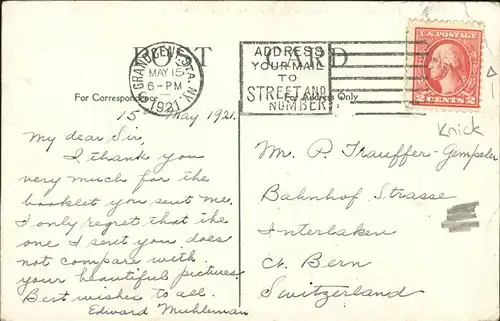 POST CARD
GRAND CENT. STA. N.Y.
MAY 15
6-PM
1921
ADDRESS
YOUR MAIL
TO
STREET AND
NUMBER
U.S. POSTAGE
2 CENTS 2
For Correspondence
For Address Only
Knick
15 May 1921.
My dear Sir,
I thank you
very much for the
booklet you sent me.
I only regret that the
one I sent you does
not compare with
your beautiful pictures.
Best wishes to all.
Edward Muhleman
Mr. P. Trauffer-Gempeler
Bahnhof Strasse
Interlaken
Ct. Bern
Switzerland